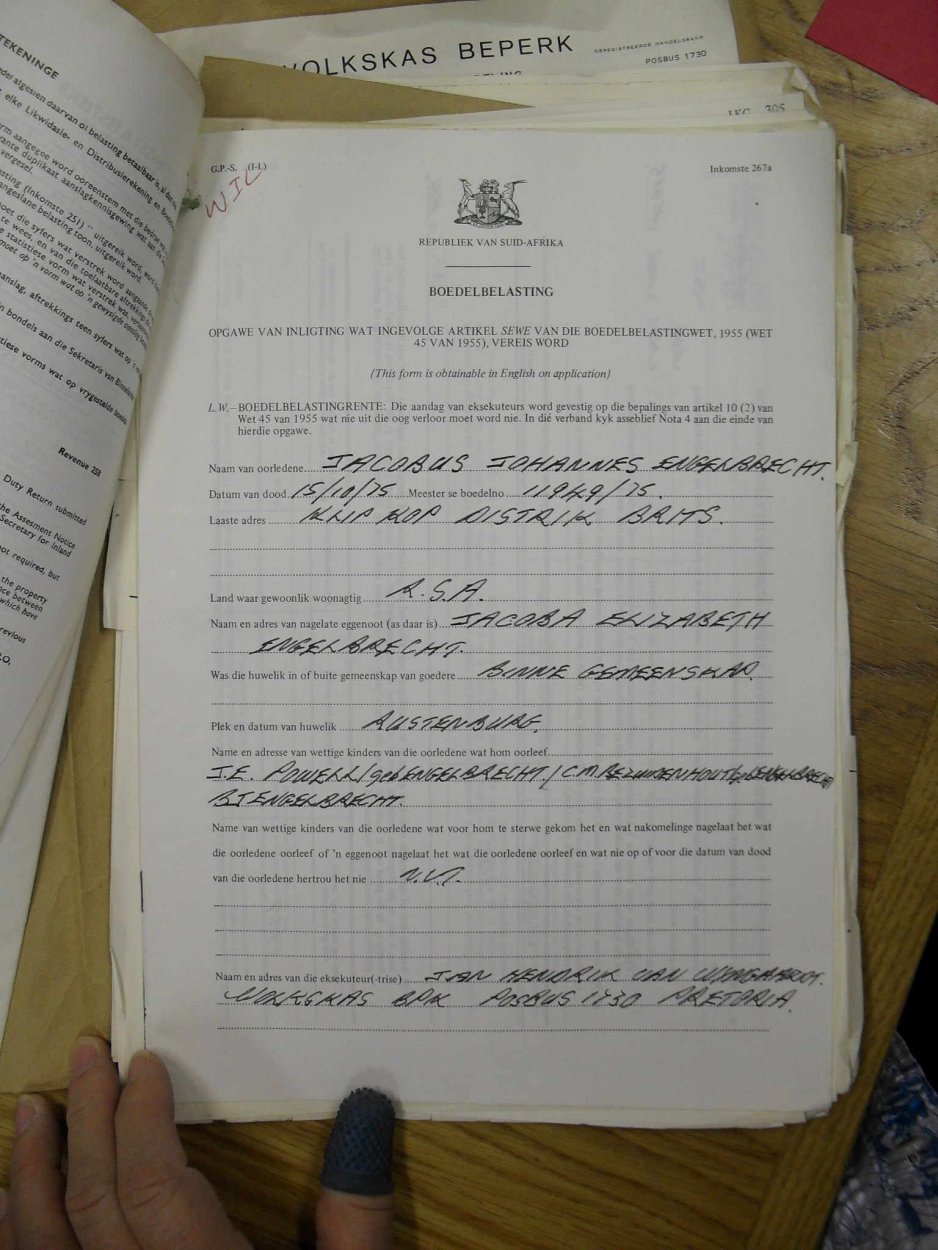 VOLKSKAS BEPERK
POSBUS 1730
TEKENINGE
Revenue 258
Duty Return submitted
the Assesment Notice
Secretary for Inland
not required, but
the property
which have
LKG 305
G.P.-S. (I-L)
Inkomste 267a
REPUBLIEK VAN SUID-AFRIKA
BOEDELBELASTING
OPGAWE VAN INLIGTING WAT INGEVOLGE ARTIKEL SEWE VAN DIE BOEDELBELASTINGWET, 1955 (WET
45 VAN 1955), VEREIS WORD
(This form is obtainable in English on application)
L.W.– BOEDELBELASTINGRENTE: Die aandag van eksekuteurs word gevestig op die bepalings van artikel 10 (2) van
Wet 45 van 1955 wat nie uit die oog verloor moet word nie. In dié verband kyk asseblief Nota 4 aan die einde van
hierdie opgawe.
Naam van oorledene JACOBUS JOHANNES ENGELBRECHT.
Datum van dood 15/10/75 Meester se boedelno 11949/75.
Laaste adres KLIP KOP DISTRIK BRITS.
Land waar gewoonlik woonagtig R.S.A.
Naam en adres van nagelate eggenoot (as daar is) JACOBA ELIZABETH
ENGELBRECHT.
Was die huwelik in of buite gemeenskap van goedere BINNE GEMEENSKAP.
Plek en datum van huwelik RUSTENBURG.
Name en adresse van wettige kinders van die oorledene wat hom oorleef
J.E. POWELL/geb ENGELBRECHT/C.M. BEZUIDENHOUT geb ENGELBRECHT
BJ ENGELBRECHT.
Name van wettige kinders van die oorledene wat voor hom te sterwe gekom het en wat nakomelinge nagelaat het wat
die oorledene oorleef of 'n eggenoot nagelaat het wat die oorledene oorleef en wat nie op of voor die datum van dood
van die oorledene hertrou het nie N.V.T.
Naam en adres van die eksekuteur(-trise) JAN HENDRIK VAN WYNGAARDT.
VOLKSKAS BPK POSBUS 1730 PRETORIA.